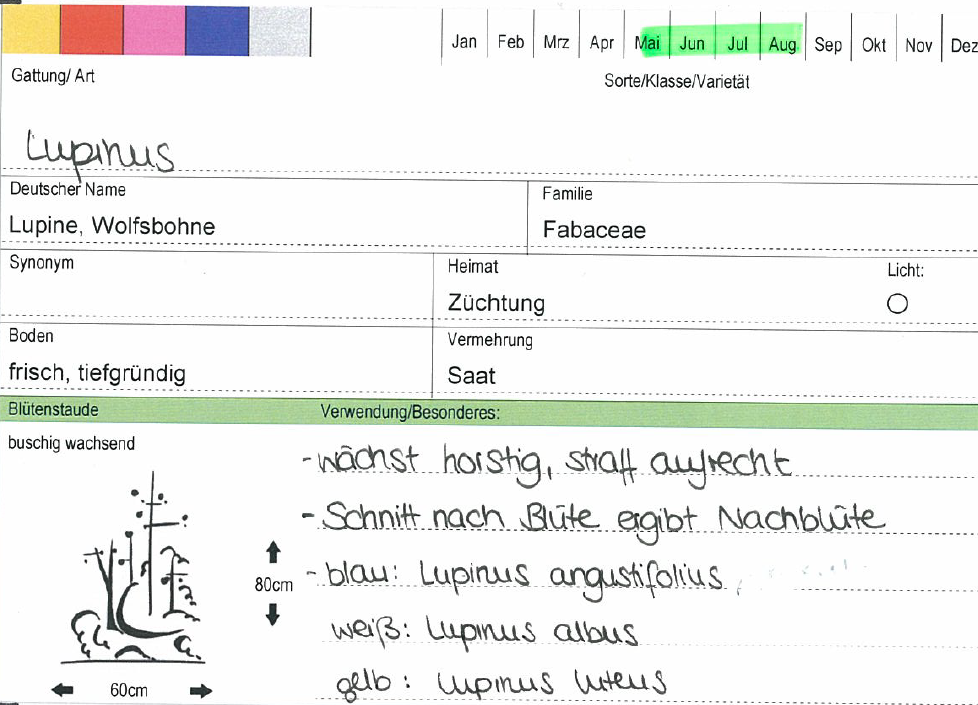 Jan Feb Mrz Apr Mai Jun Jul Aug Sep Okt Nov Dez
Gattung/ Art Sorte/Klasse/Varietät
Lupinus
Deutscher Name Familie
Lupine, Wolfsbohne Fabaceae
Synonym Heimat Licht:
Züchtung
Boden Vermehrung
frisch, tiefgründig Saat
Blütenstaude Verwendung/Besonderes:
buschig wachsend
- wächst horstig, straff aufrecht
- Schnitt nach Blüte ergibt Nachblüte
- blau: Lupinus angustifolius,
80cm
weiß: Lupinus albus
gelb: Lupinus luteus
60cm